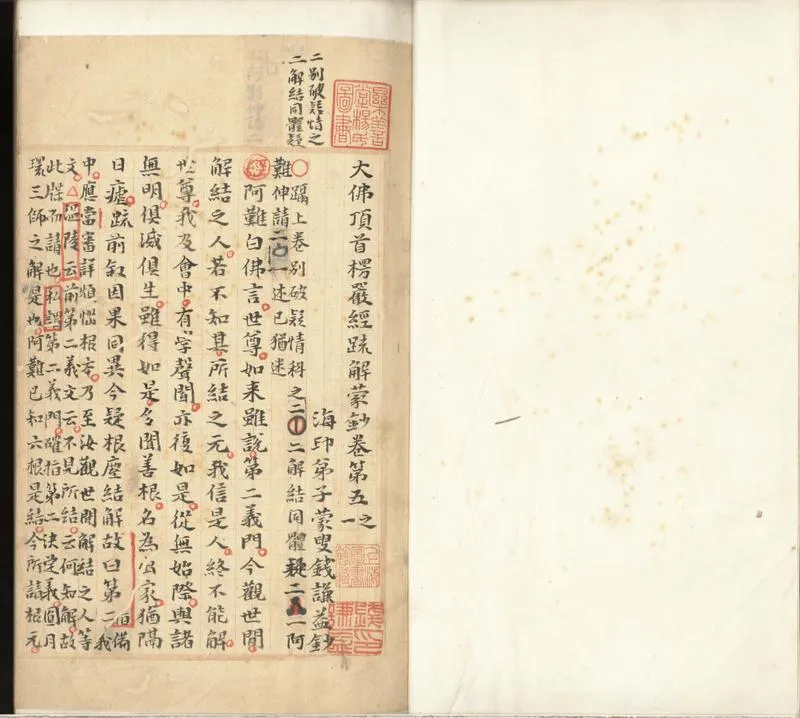 二別破疑情之
二解結同體疑
大佛頂首楞嚴經疏解蒙鈔卷第五之一
海印弟子蒙叟錢謙益鈔
躡上卷別破疑情科之二 二解結同體疑二 一阿
難伸請二 一述已猶迷
經 阿難白佛言世尊如來雖說第二義門今觀世間
解結之人若不知其所結之元我信是人終不能解
世尊我及會中有學聲聞亦復如是從無始際與諸
無明俱滅俱生雖得如是多聞善根名為出家猶隔
日瘧疏前叙因果同異今疑根塵結解故曰第二
中應當審詳煩惱根本乃至汝觀世間解結之人等
文溫陵云前第二義文云不見所結云何知解故
此牒而請也私謂第二義門確指第二決定義圓
環三師之解是也阿難已知六根是結今所請根元